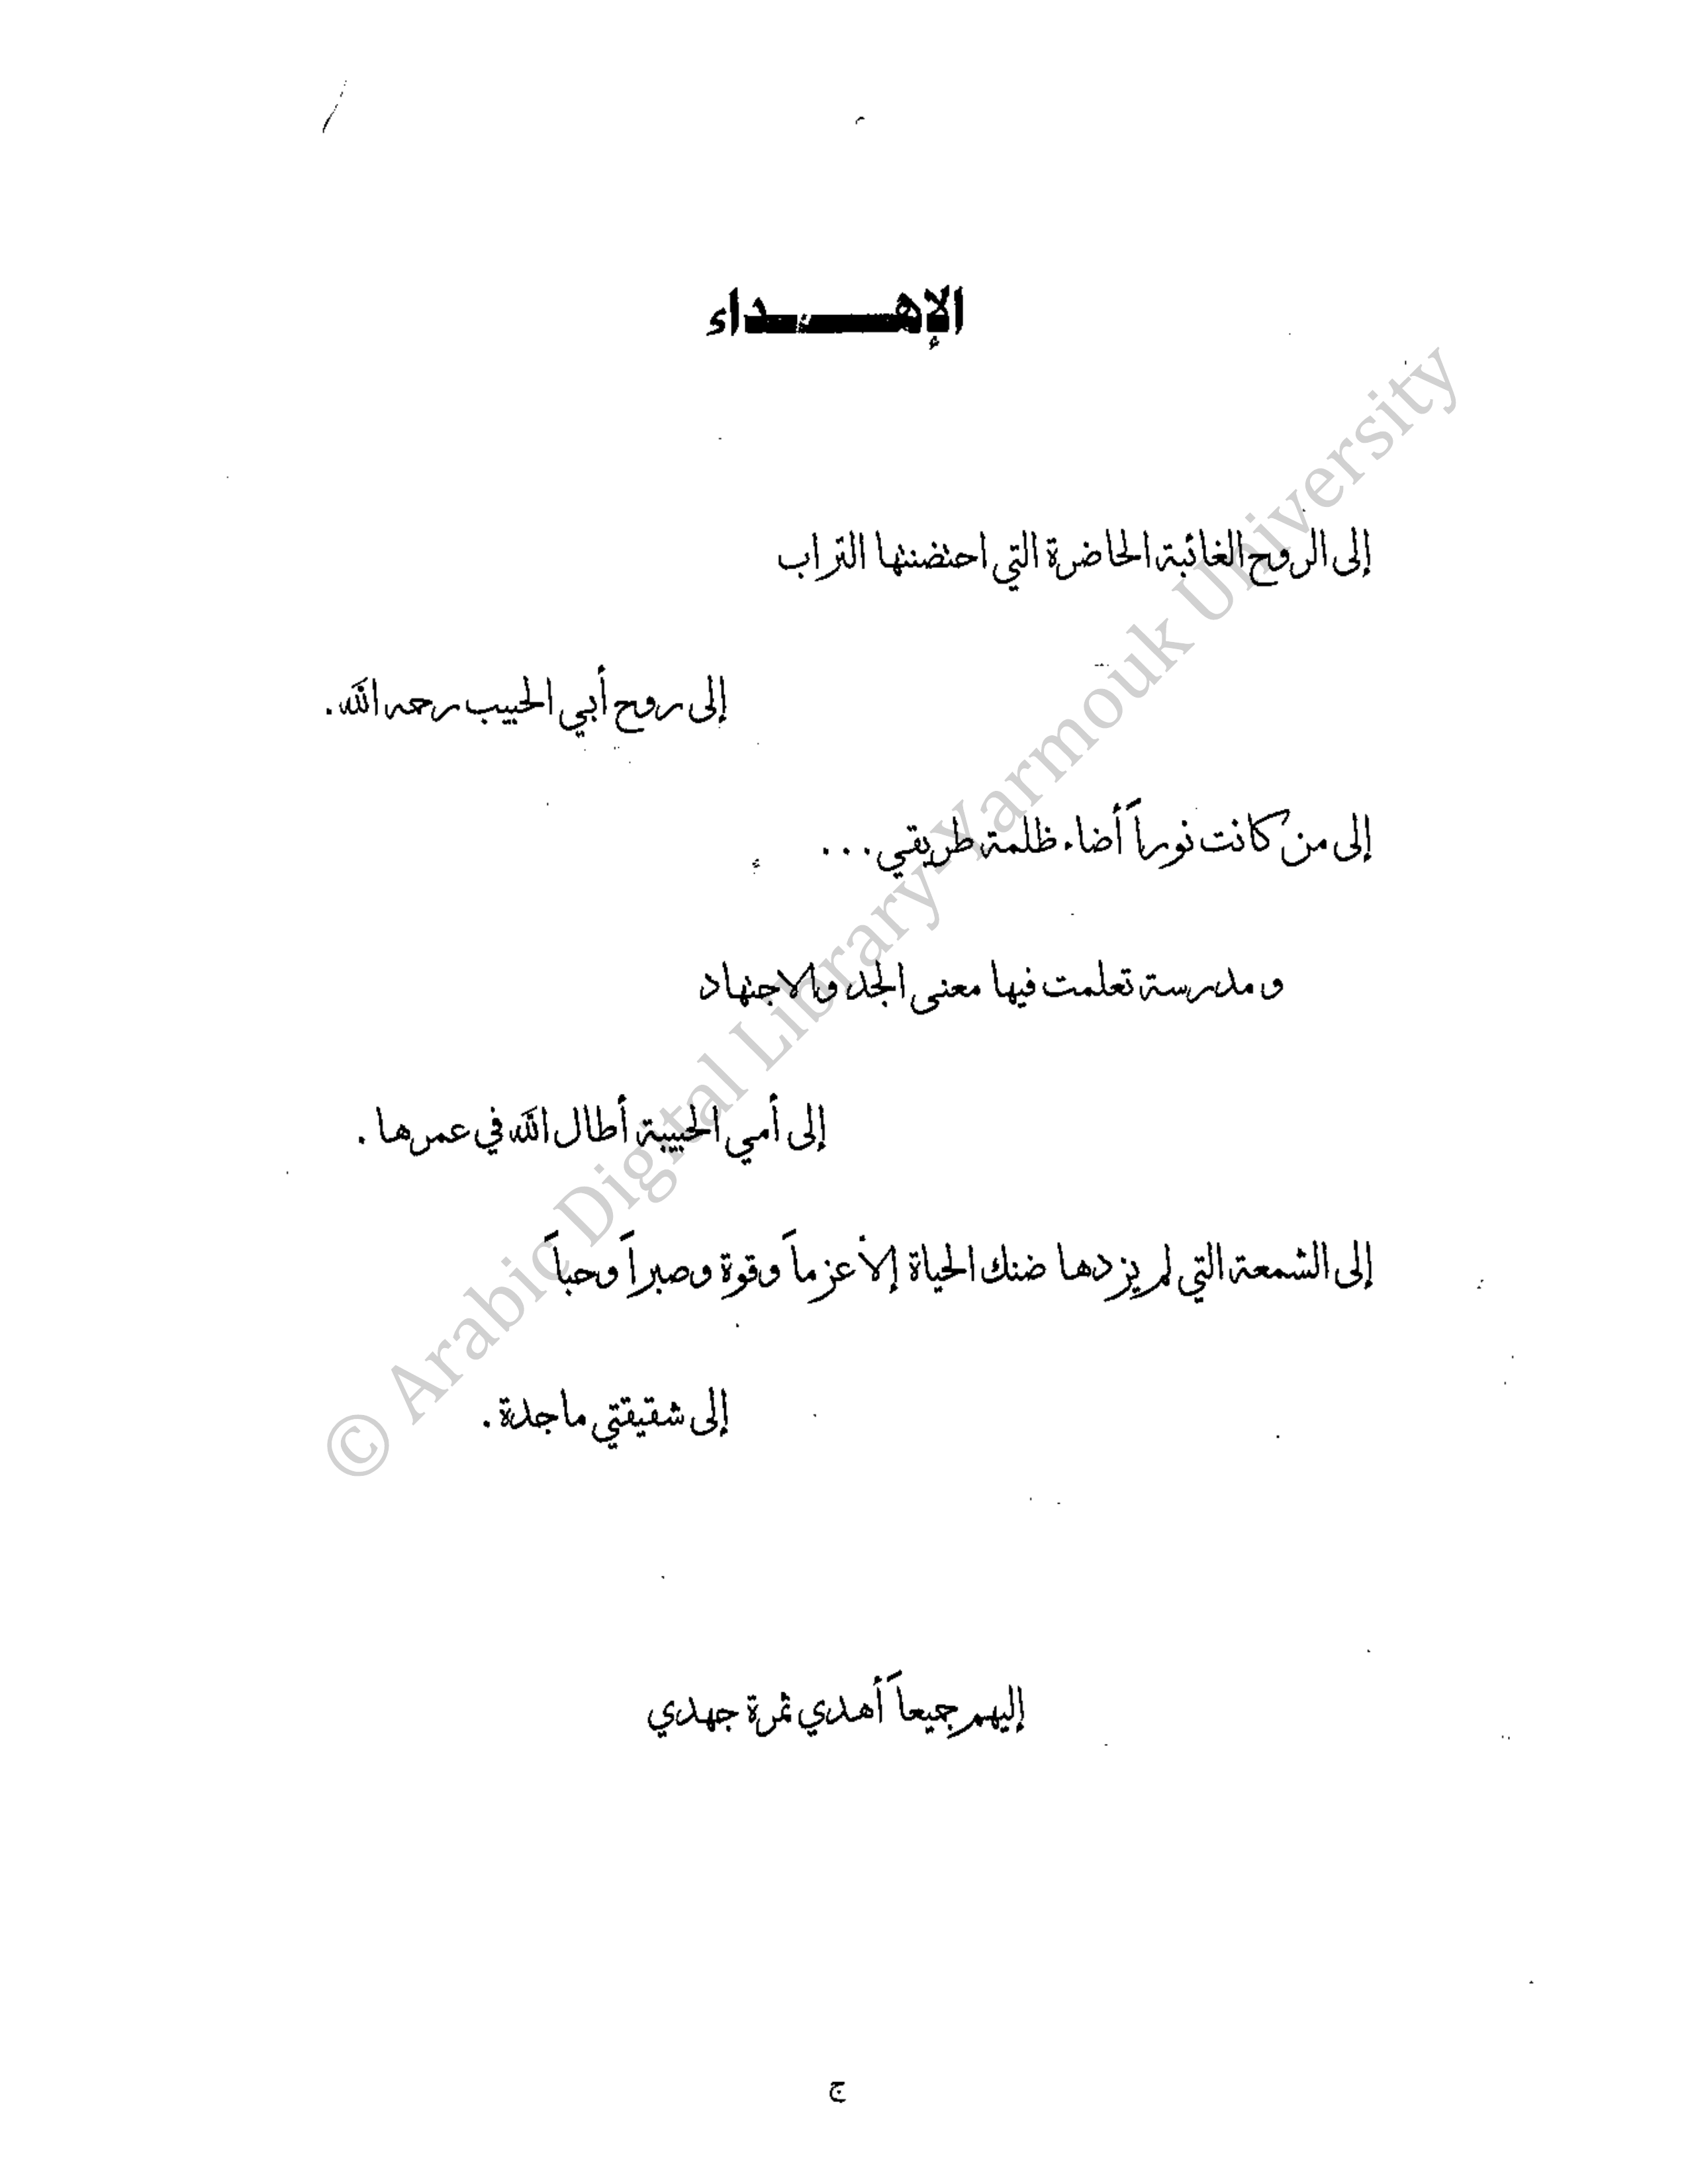 الإهـــــداء
إلى الروح الغائبة الحاضرة التي احتضنتها التراب
إلى روح أبي الحبيب رحمه الله.
إلى من كانت نوراً أضاء ظلمة طريقي...
و مدرسة تعلمت فيها معنى الجد والاجتهاد
إلى أمي الحبيبة أطال الله في عمرها .
إلى الشمعة التي لم يزدها ضنك الحياة إلا عزماً وقوة وصبراً وحباً
إلى شقيقتي ماجدة .
إليهم جميعاً أهدي ثمرة جهدي
ج
© Arabic Digital Library-Yarmouk University